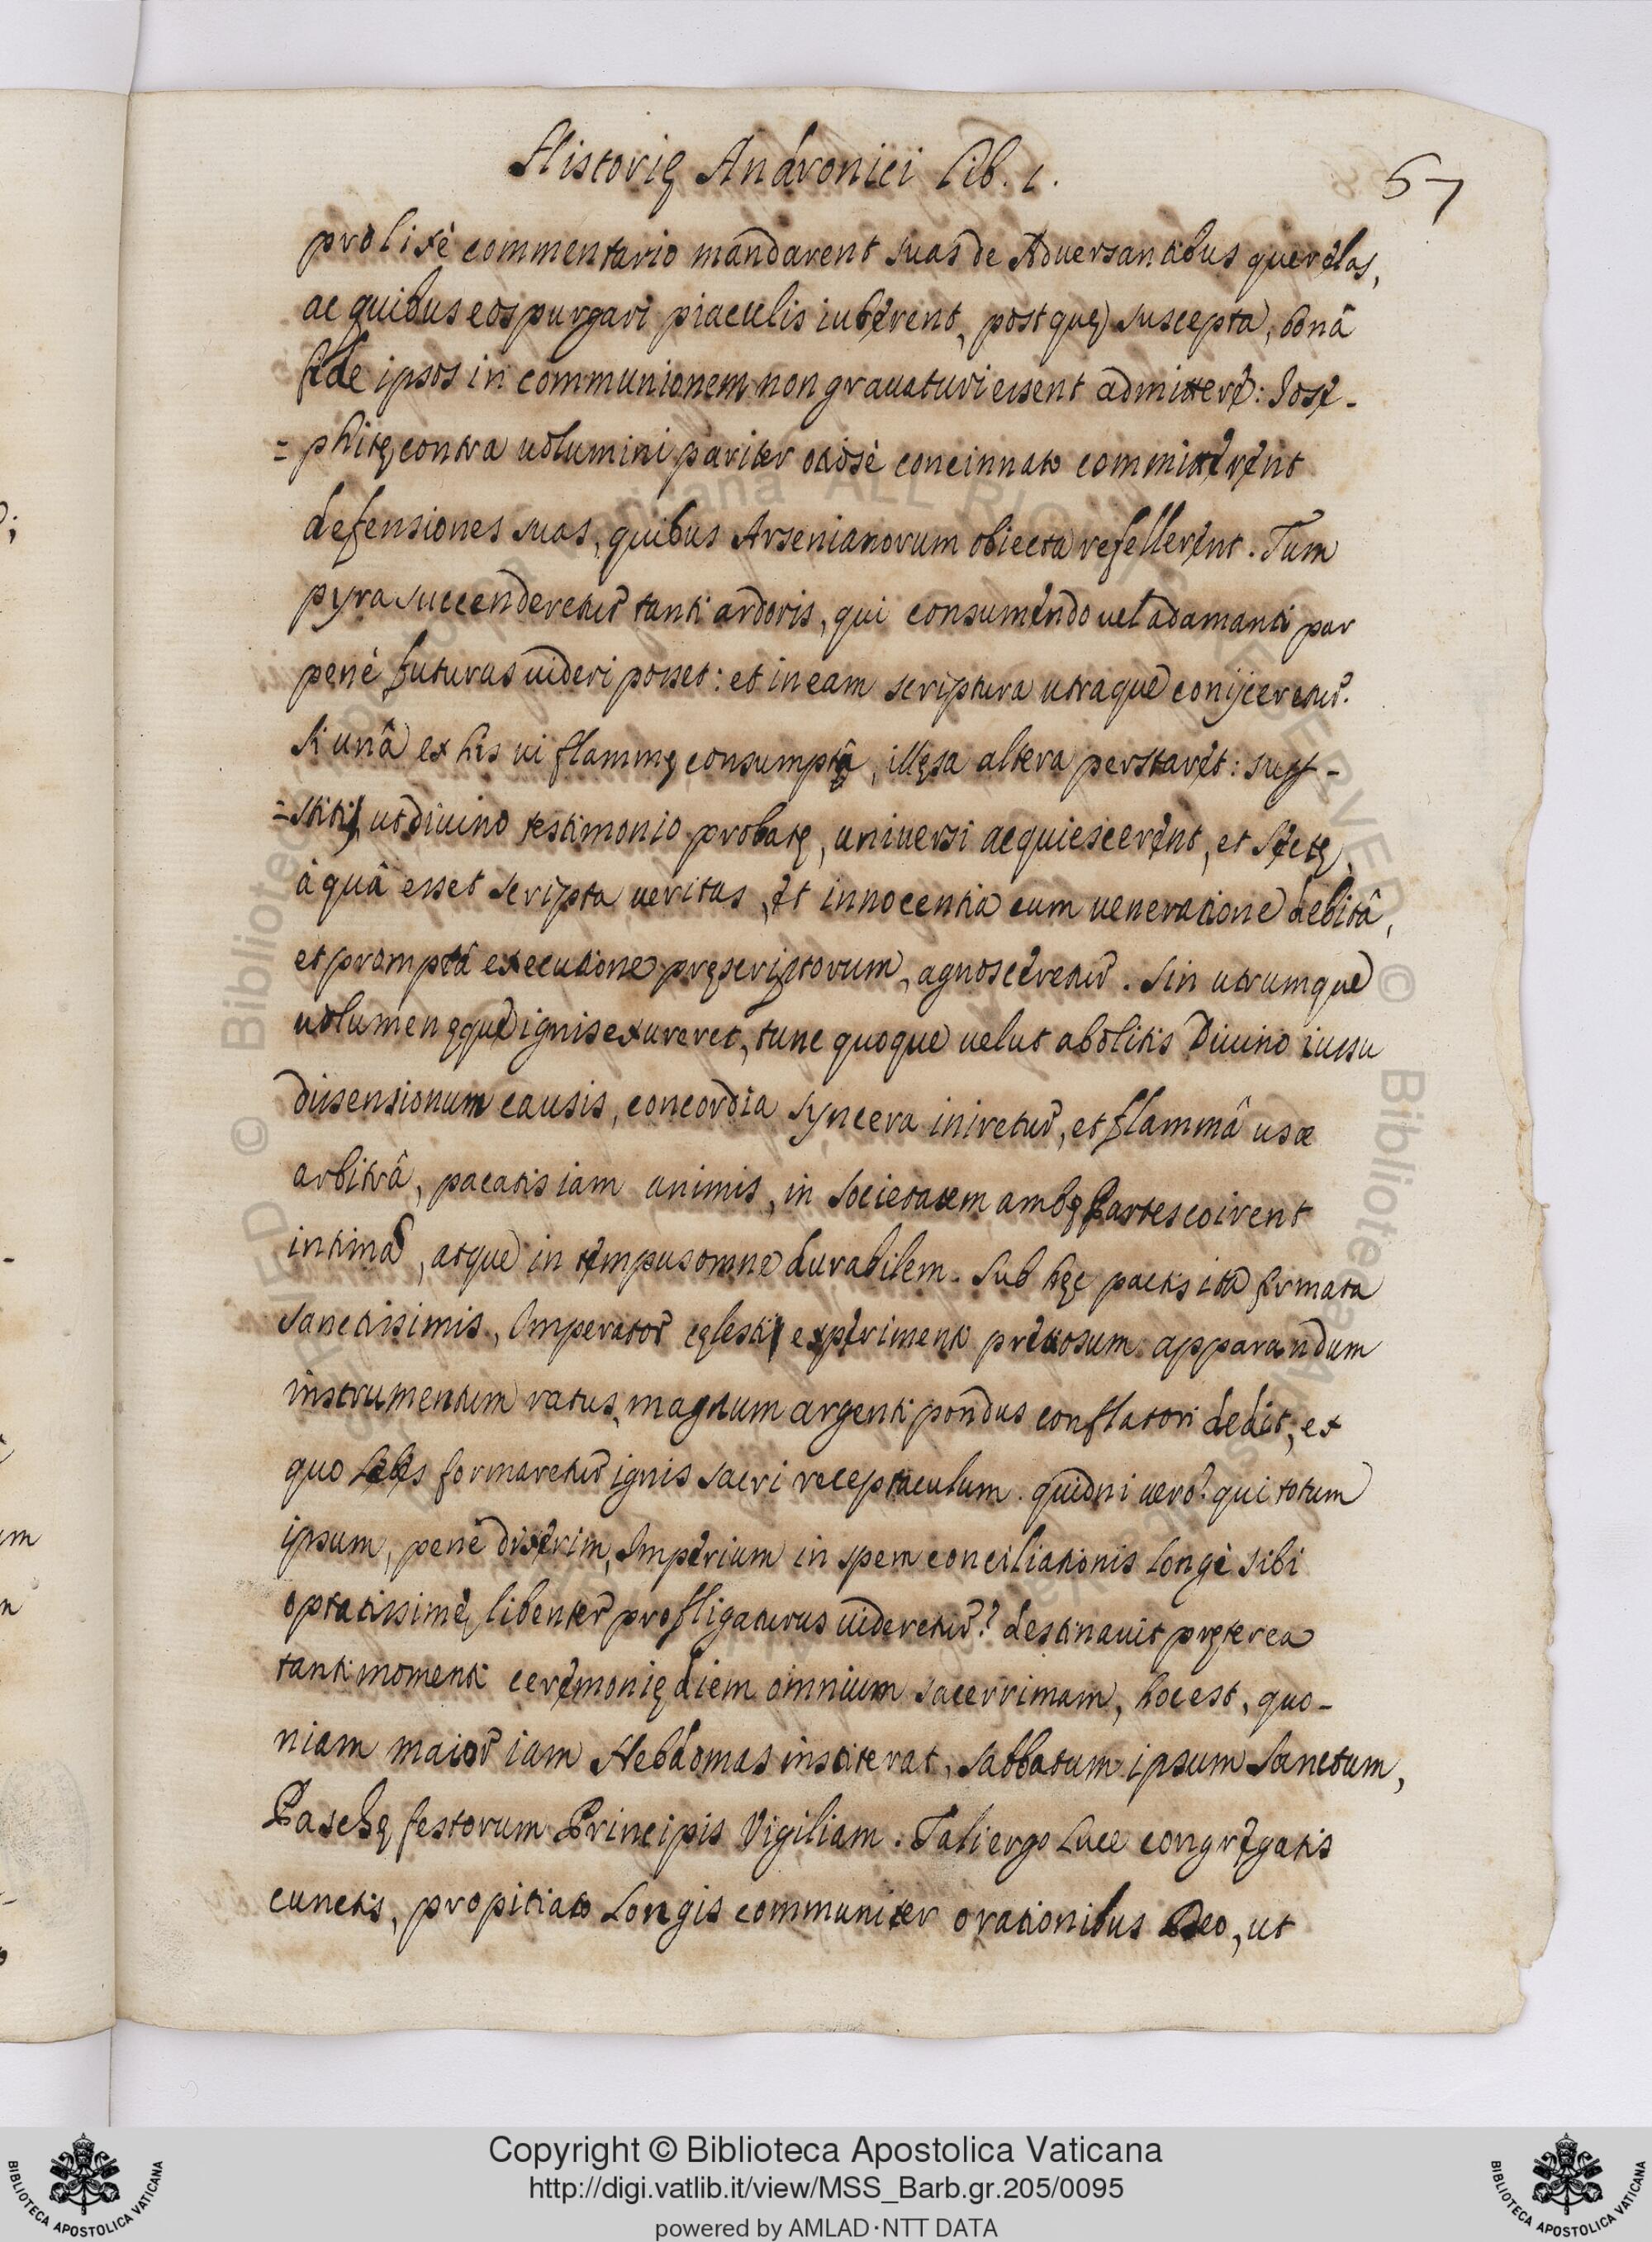 Historię Andronici Lib. 1.
57
prolixè commentario mandarent suas de Aduersantibus querelas,
ac quibus eos purgari piaculis iuberent, post quę suscepta, bonâ
fide ipsos in communionem non grauaturi essent admittere: Iose-
=phitę contra uolumini pariter otiosè concinnato committerent
defensiones suas, quibus Arsenianorum obiecta refellerent. Tum
pyra succenderetur tanti ardoris, qui consumendo uel adamanti par
penè futurus uideri posset: et in eam scriptura utraque conijceretur.
Si unâ ex his ui flammę consumptâ, illęsa altera perstaret: supe-
=rstiti, ut diuino testimonio probatę, uniuersi acquiescerent, et Sectę,
à quâ esset scripta ueritas, et innocentia cum ueneratione debitâ,
et promptâ executione pręscriptorum, agnosceretur. Sin utrumque
uolumen ęque ignis exureret, tunc quoque uelut abolitis Diuino iussu
dissensionum causis, concordia syncera iniretur, et flammâ usæ
arbitrâ, pacatis iam animis, in societatem ambę Partes coirent
intimam, atque in tempus omne durabilem. Sub hęc pactis ita firmata
sanctissimis, Imperator cęlesti experimento pretiosum apparandum
instrumentum ratus, magnum argenti pondus conflatori dedit, ex
quo Lebes formaretur ignis sacri receptaculum. quidni uero? qui totum
ipsum, penè dixerim, Imperium in spem conciliationis longè sibi
optatissimę, libenter profligaturus uideretur? destinauit pręterea
tanti momenti ceremonię diem omnium sacerrimam, hoc est, quo-
niam maior iam Hebdomas institerat, Sabbatum ipsum Sanctum,
Paschę festorum Principis Vigiliam. Tali ergo Luce congregatis
cunctis, propitiato Longis communiter orationibus Deo, ut
Copyright © Biblioteca Apostolica Vaticana
http://digi.vatlib.it/view/MSS_Barb.gr.205/0095
powered by AMLAD·NTT DATA
BIBLIOTECA APOSTOLICA VATICANA
BIBLIOTECA APOSTOLICA VATICANA